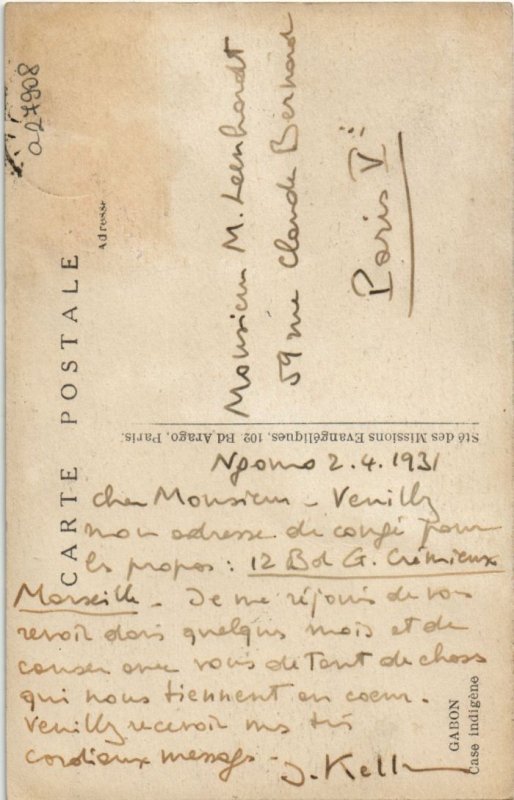 a27908
CARTE POSTALE
Adresse
Monsieur M. Leenhardt
59 rue Claude Bernard
Paris V
Sté des Missions Evangéliques, 102 Bd Arago, Paris.
Ngomo 2.4.1931
Cher Monsieur - Veuillez
mon adresse de congé pour
les propos : 12 Bd G. Crémieux
Marseille - Je me réjouis de vous
revoir dans quelques mois et de
causer avec vous de tant de choses
qui nous tiennent en coeur.
Veuillez recevoir mes très
cordiaux messages -
J. Keller
GABON
Case indigène